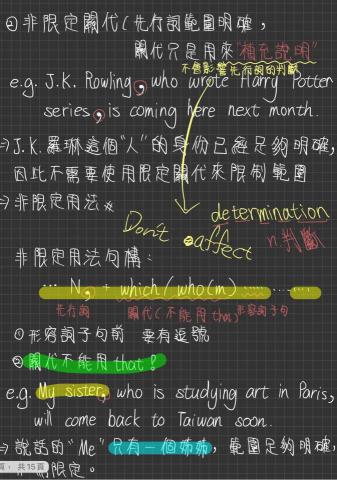 ②非限定關代(先行詞範圍明確,
關代只是用來"補充說明"
不會影響先行詞的判斷
e.g. J.K. Rowling, who wrote Harry Potter
series, is coming here next month.
⇒J.K.羅琳這個"人"的身份已經足夠明確,
因此不需要使用限定關代來限制範圍
⇒非限定用法※
Don't affect
determination
n.判斷
非限定用法句構:
… N, + which/who(m) …… ……
先行詞 關代(不能用that) 形容詞子句
①形容詞子句前 要有逗號
②關代不能用that?
e.g. My sister, who is studying art in Paris,
will come back to Taiwan soon.
⇒說話的"Me"只有一個姊姊, 範圍足夠明確,
限定。
頁, 共15頁